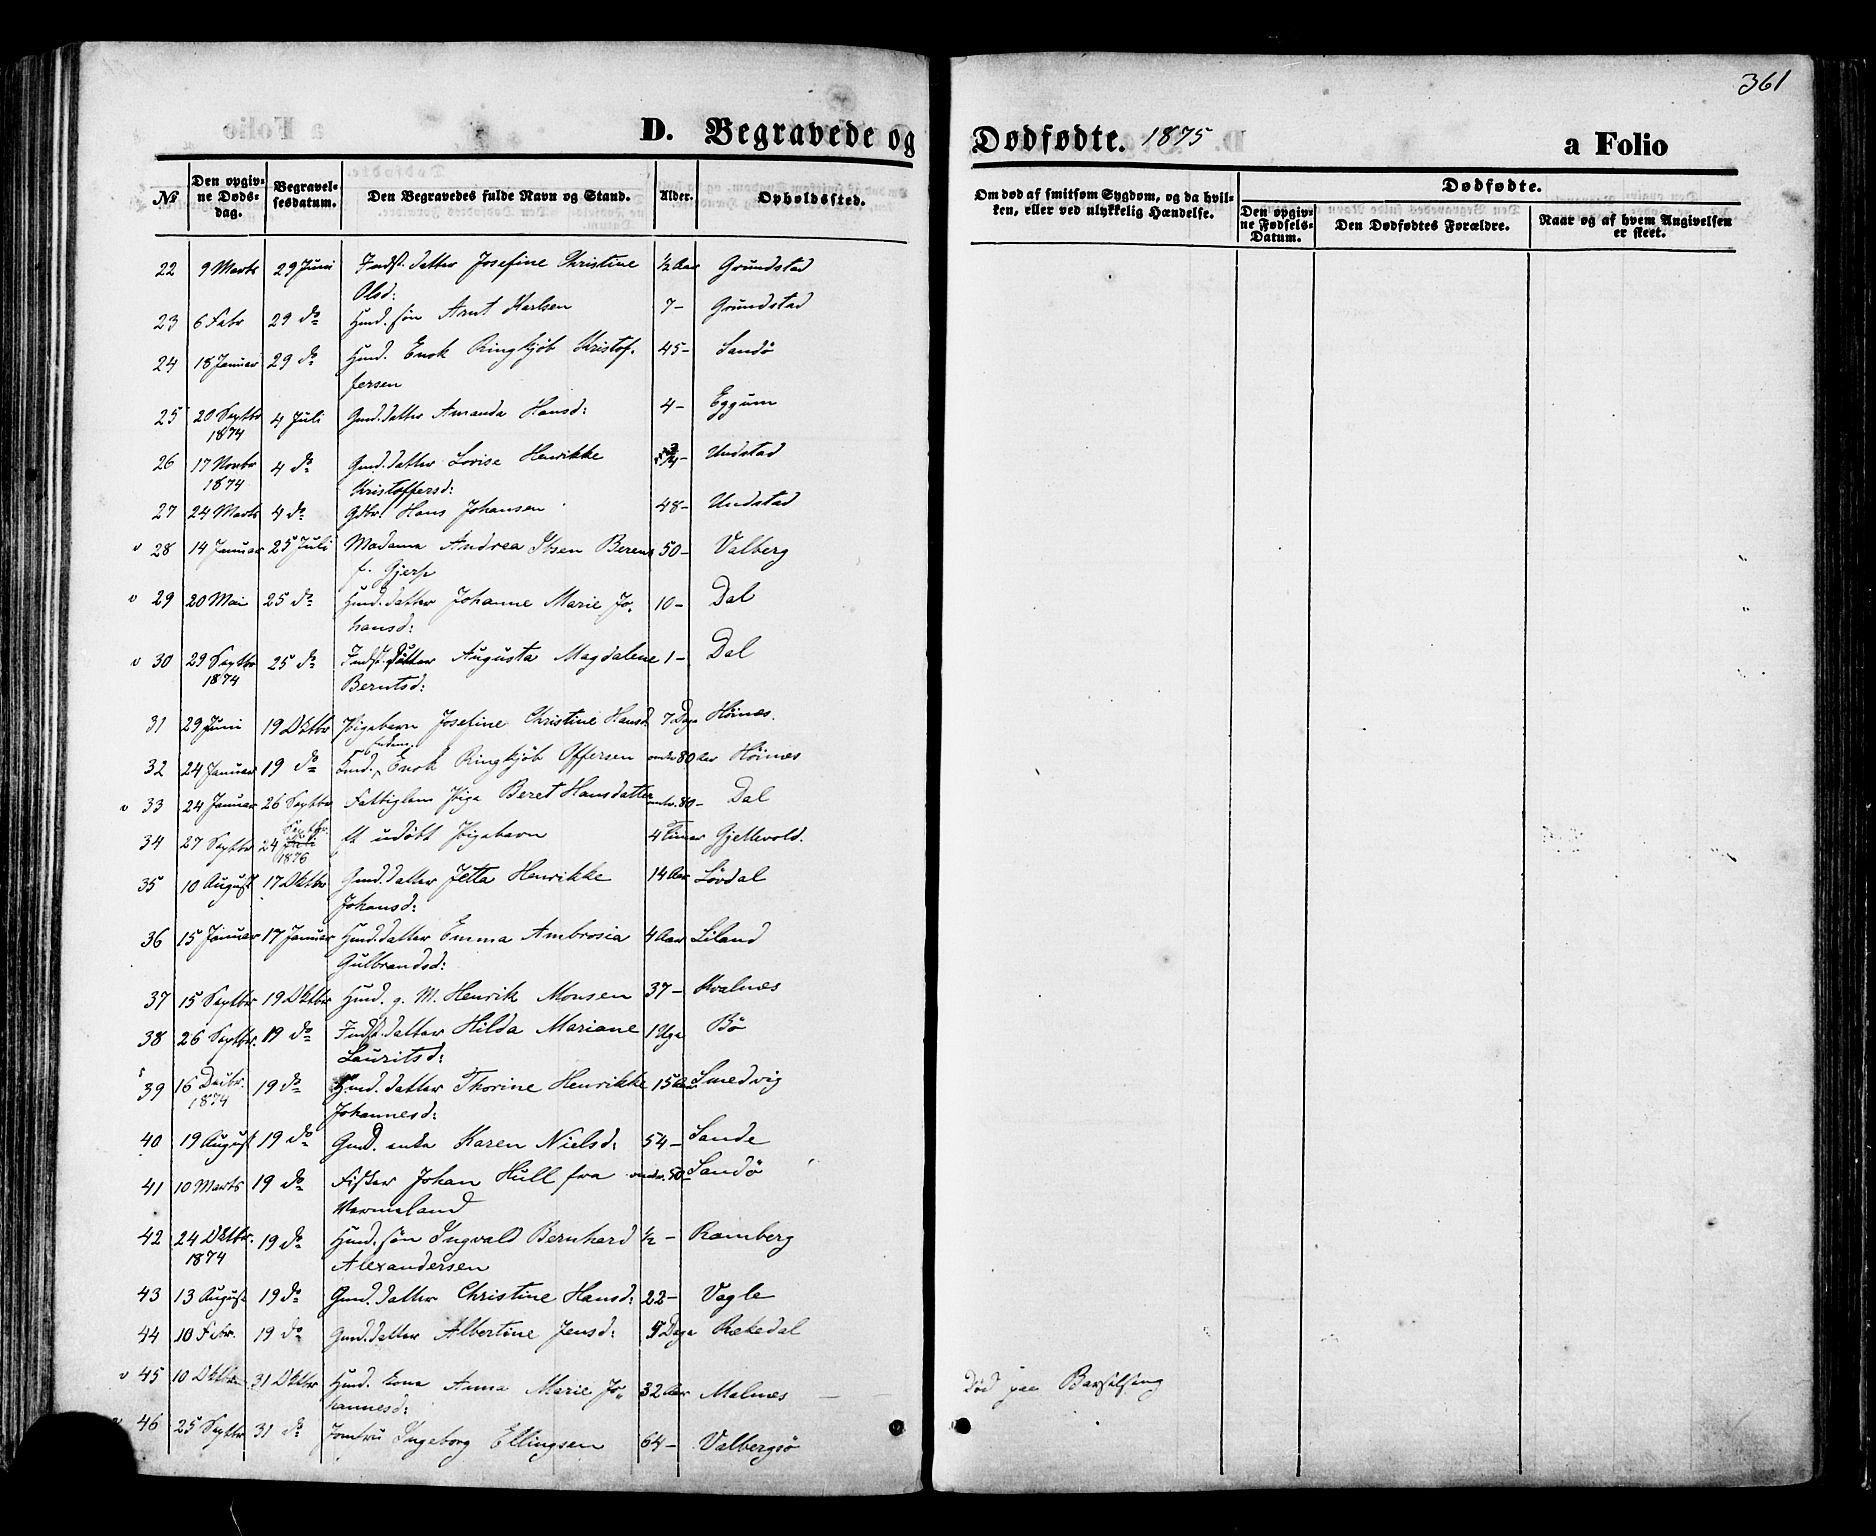 361
D. Begravede og Dødfødte. 1875 a Folio
№ Den opgivne Dødsdag. Begravelsesdatum. Den Begravedes fulde Navn og Stand. Alder. Opholdssted. Om død af smitsom Sygdom, og da hvilken, eller ved ulykkelig Hændelse. Dødfødte.
Den opgivne Fødsels-Datum. Den Dødfødtes Forældre. Naar og af hvem Angivelsen er skeet.
22 9 Marts 29 Juni Indst. datter Josefine Christine ½ Aar Grundstad
Olsd:
23 6 Febr 29 do Huusm. søn Arnt Karlsen 7- Grundstad
24 18 Januar 29 do Huusm. Enok Ringkjøb Kristof- 45- Sandø
fersen
25 20 Septbr 4 Juli Gmd. datter Amanda Hansd: 4- Eggum
1874
26 17 Novbr 4 do Gmd. datter Lovise Henrikke ¾- Undstad
1874 Kristoffersd:
27 24 Marts 4 do Gdbr. Hans Johansen 48- Undstad
v 28 14 Januar 25 Juli Madama Andrea Ibsen Berens 50- Valberg
f. Gjerp
v 29 20 Mai 25 do Hmd. datter Johanne Marie Jo- 10- Dal
hansd:
v 30 29 Septbr 25 do Indst. datter Augusta Magdalene 1- Dal
1874 Berntsd:
31 29 Juni 19 Oktbr Pigebarn Josefine Christine Hansd. 7 Dage Høines.
32 24 Januar 19 do Hmd. Enok Ringkjøb Offersen omtr 80 Aar Høines
v 33 24 Januar 26 Septbr Fattiglem Pige Beret Hansdatter omtr. 80- Dal
34 27 Septbr 24 Septbr. Juli 1876 et udøbt Pigebarn 4 Timer Gjellevold.
35 10 August 17 Oktbr Gmd. datter Jetta Henrikke 14 Aar Lövdal
Johansd:
36 15 Januar 17 Januar Hmd. datter Emma Ambrosia 4 Aar Liland
Gulbrandsd:
37 15 Septbr 19 Oktbr Hmd. g. M. Henrik Monsen 37- Kvalnes
38 26 Septbr. 19 do Indst. datter Hilda Mariane 1 Uge Bö
Lauritsd:
39 16 Decbr. 19 do Hmd. datter Thorine Henrikke 15 Aar Smedvig
1874 Johannesd:
40 19 August 19 do Gmd. enke Karen Nielsd: 54- Sande
41 10 Marts 19 do Fisker Johan Hull fra omtr. 50- Sandö
Vermeland
42 24 Oktbr. 19 do Hmd. søn Ingvald Bernhard ½- Ramberg
1874 Alexandersen
43 13 August 19 do Gmd. datter Christine Hansd: 22- Vagle
44 10 Febr. 19 do Gmd. datter Albertine Jensd: Dage Rekedal
v 45 10 Oktbr 31 Oktbr Hmd. kona Anna Marie Jo- 32 Aar Malnes Död paa Barselseng
hannesd:
46 25 Septbr 31 do Jomfru Ingeborg Ellingsen 64- Valbergsö